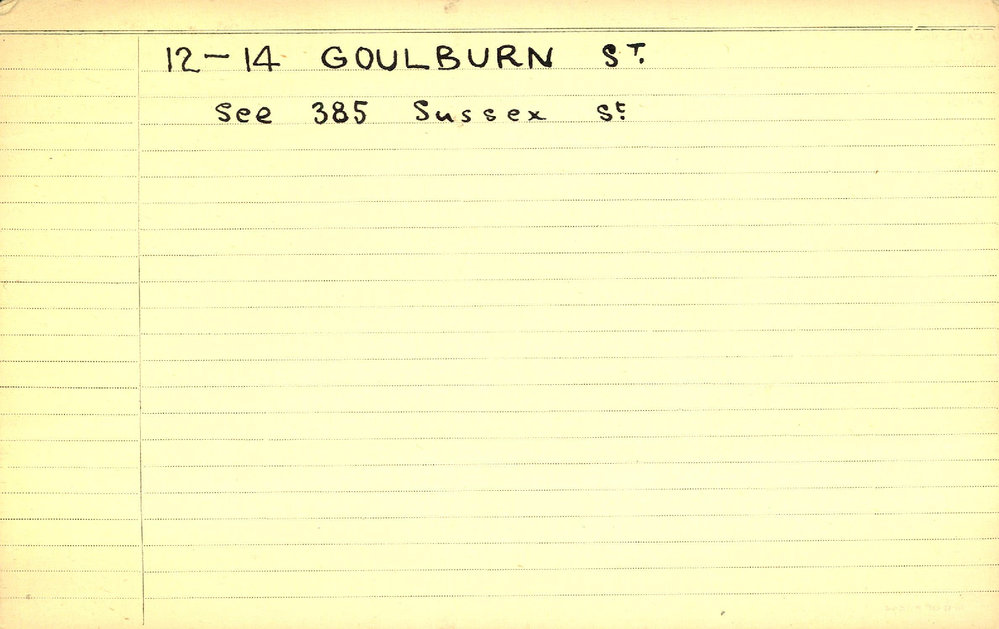 12-14 GOULBURN ST.
See 385 Sussex St.